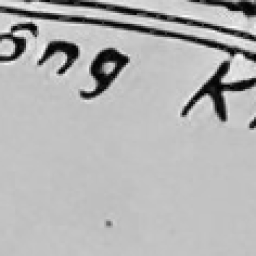 ông K